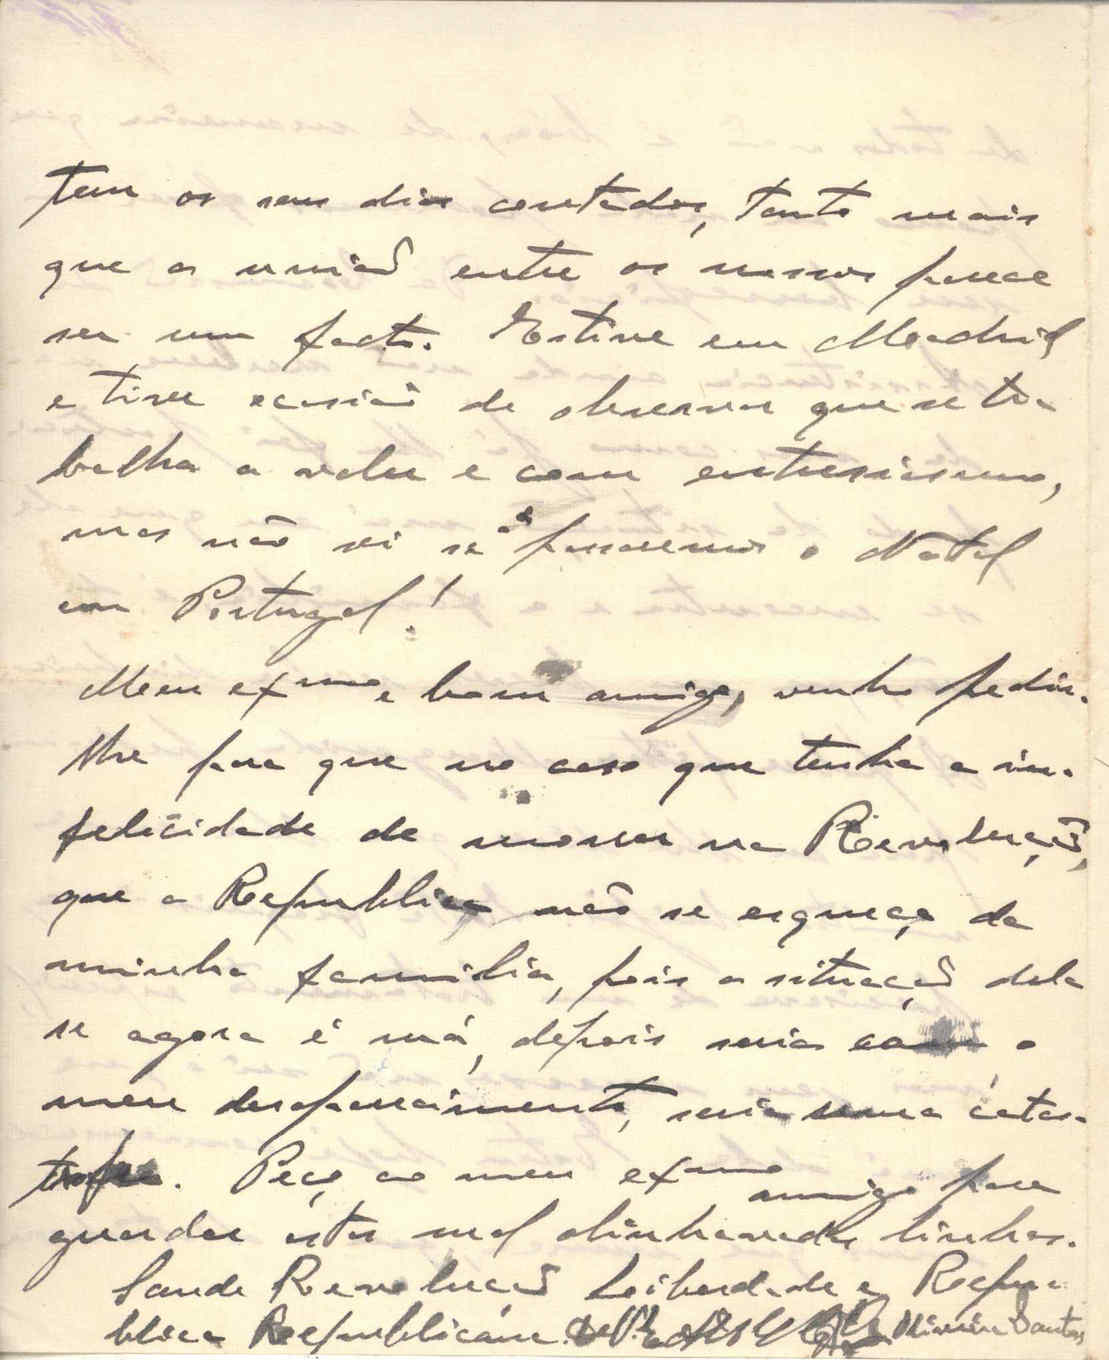 tem os seus dias contados, tanto mais
que a união entre os nossos parece
ser um facto. Estive em Madrid
e tive ocasião de observar que se tra-
balha a valer e com entusiasmo,
mas não sei se passaremos o Natal
em Portugal!
Meu exmo e bom amigo, venho pedir-
lhe para que no caso que tenha a in-
felicidade de morrer na Revolução,
que a Republica não se esqueça da
minha familia, pois a situação dela
se agora é má, depois seria com o
meu desaparecimento, seria uma catas-
trofe. Peço ao meu exmo amigo para
guardar estas mal alinhavadas linhas.
Saude Revolução Leiberdade e Repu-
blica Republicana Santos